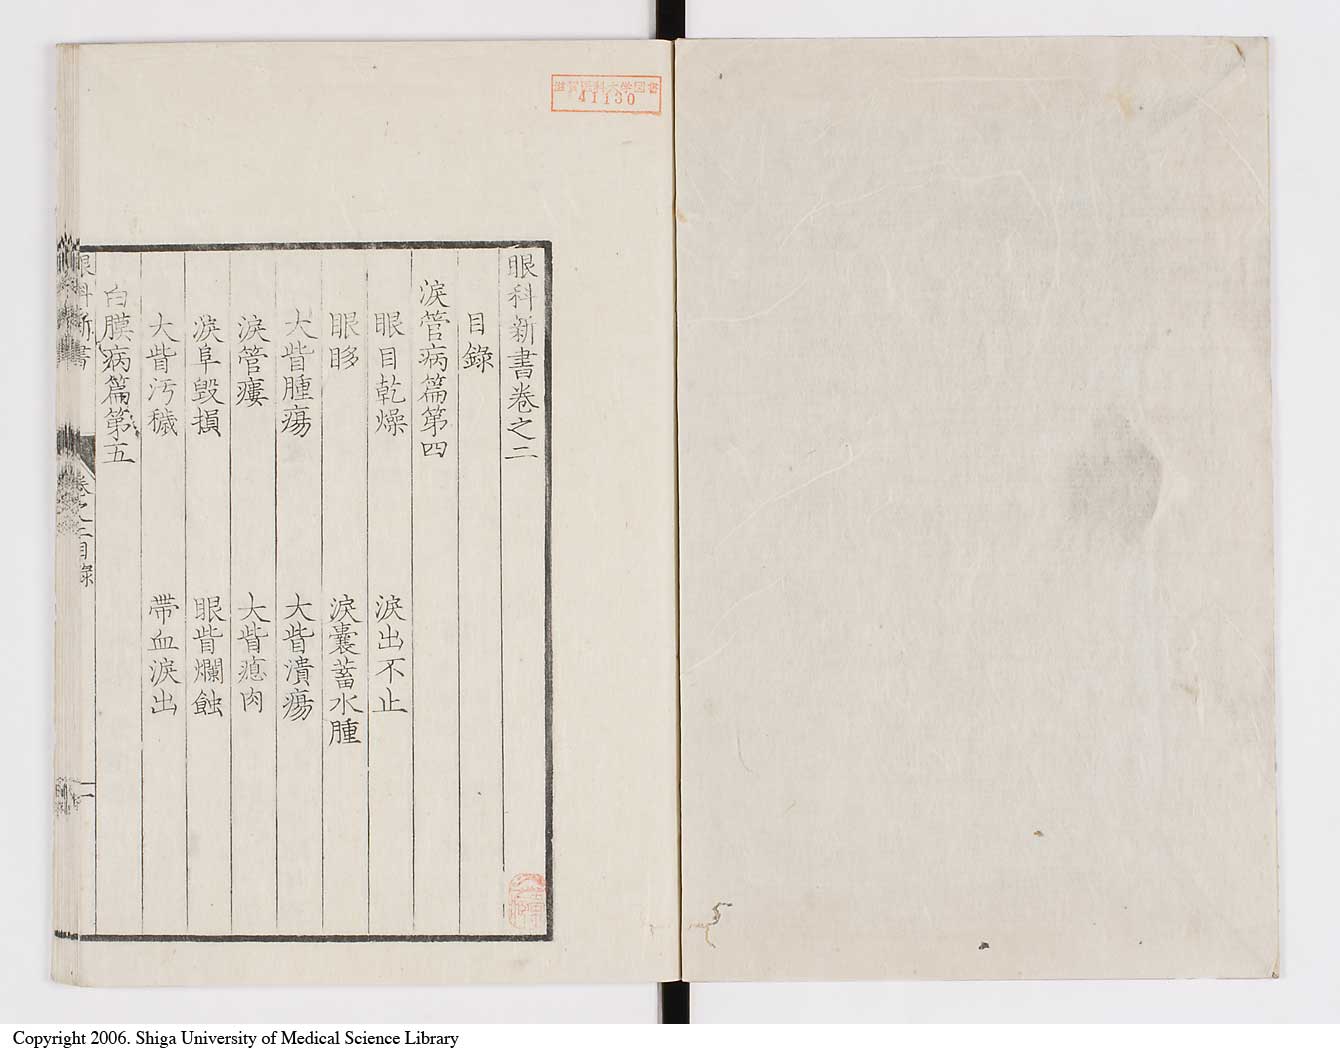 滋賀医科大学図書
41130
眼科新書巻之二
目錄
淚管病篇第四
眼目乾燥
淚出不止
眼眵
淚囊蓄水腫
大眥腫瘍
大眥潰瘍
淚管瘻
大眥瘜肉
淚阜毀損
眼眥爛蝕
大眥汚穢
帶血淚出
白膜病篇第五
眼科新書
卷之二目錄
一
Copyright 2006. Shiga University of Medical Science Library